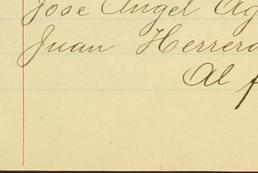 Jose Angel Ag
Juan Herrera
Al f